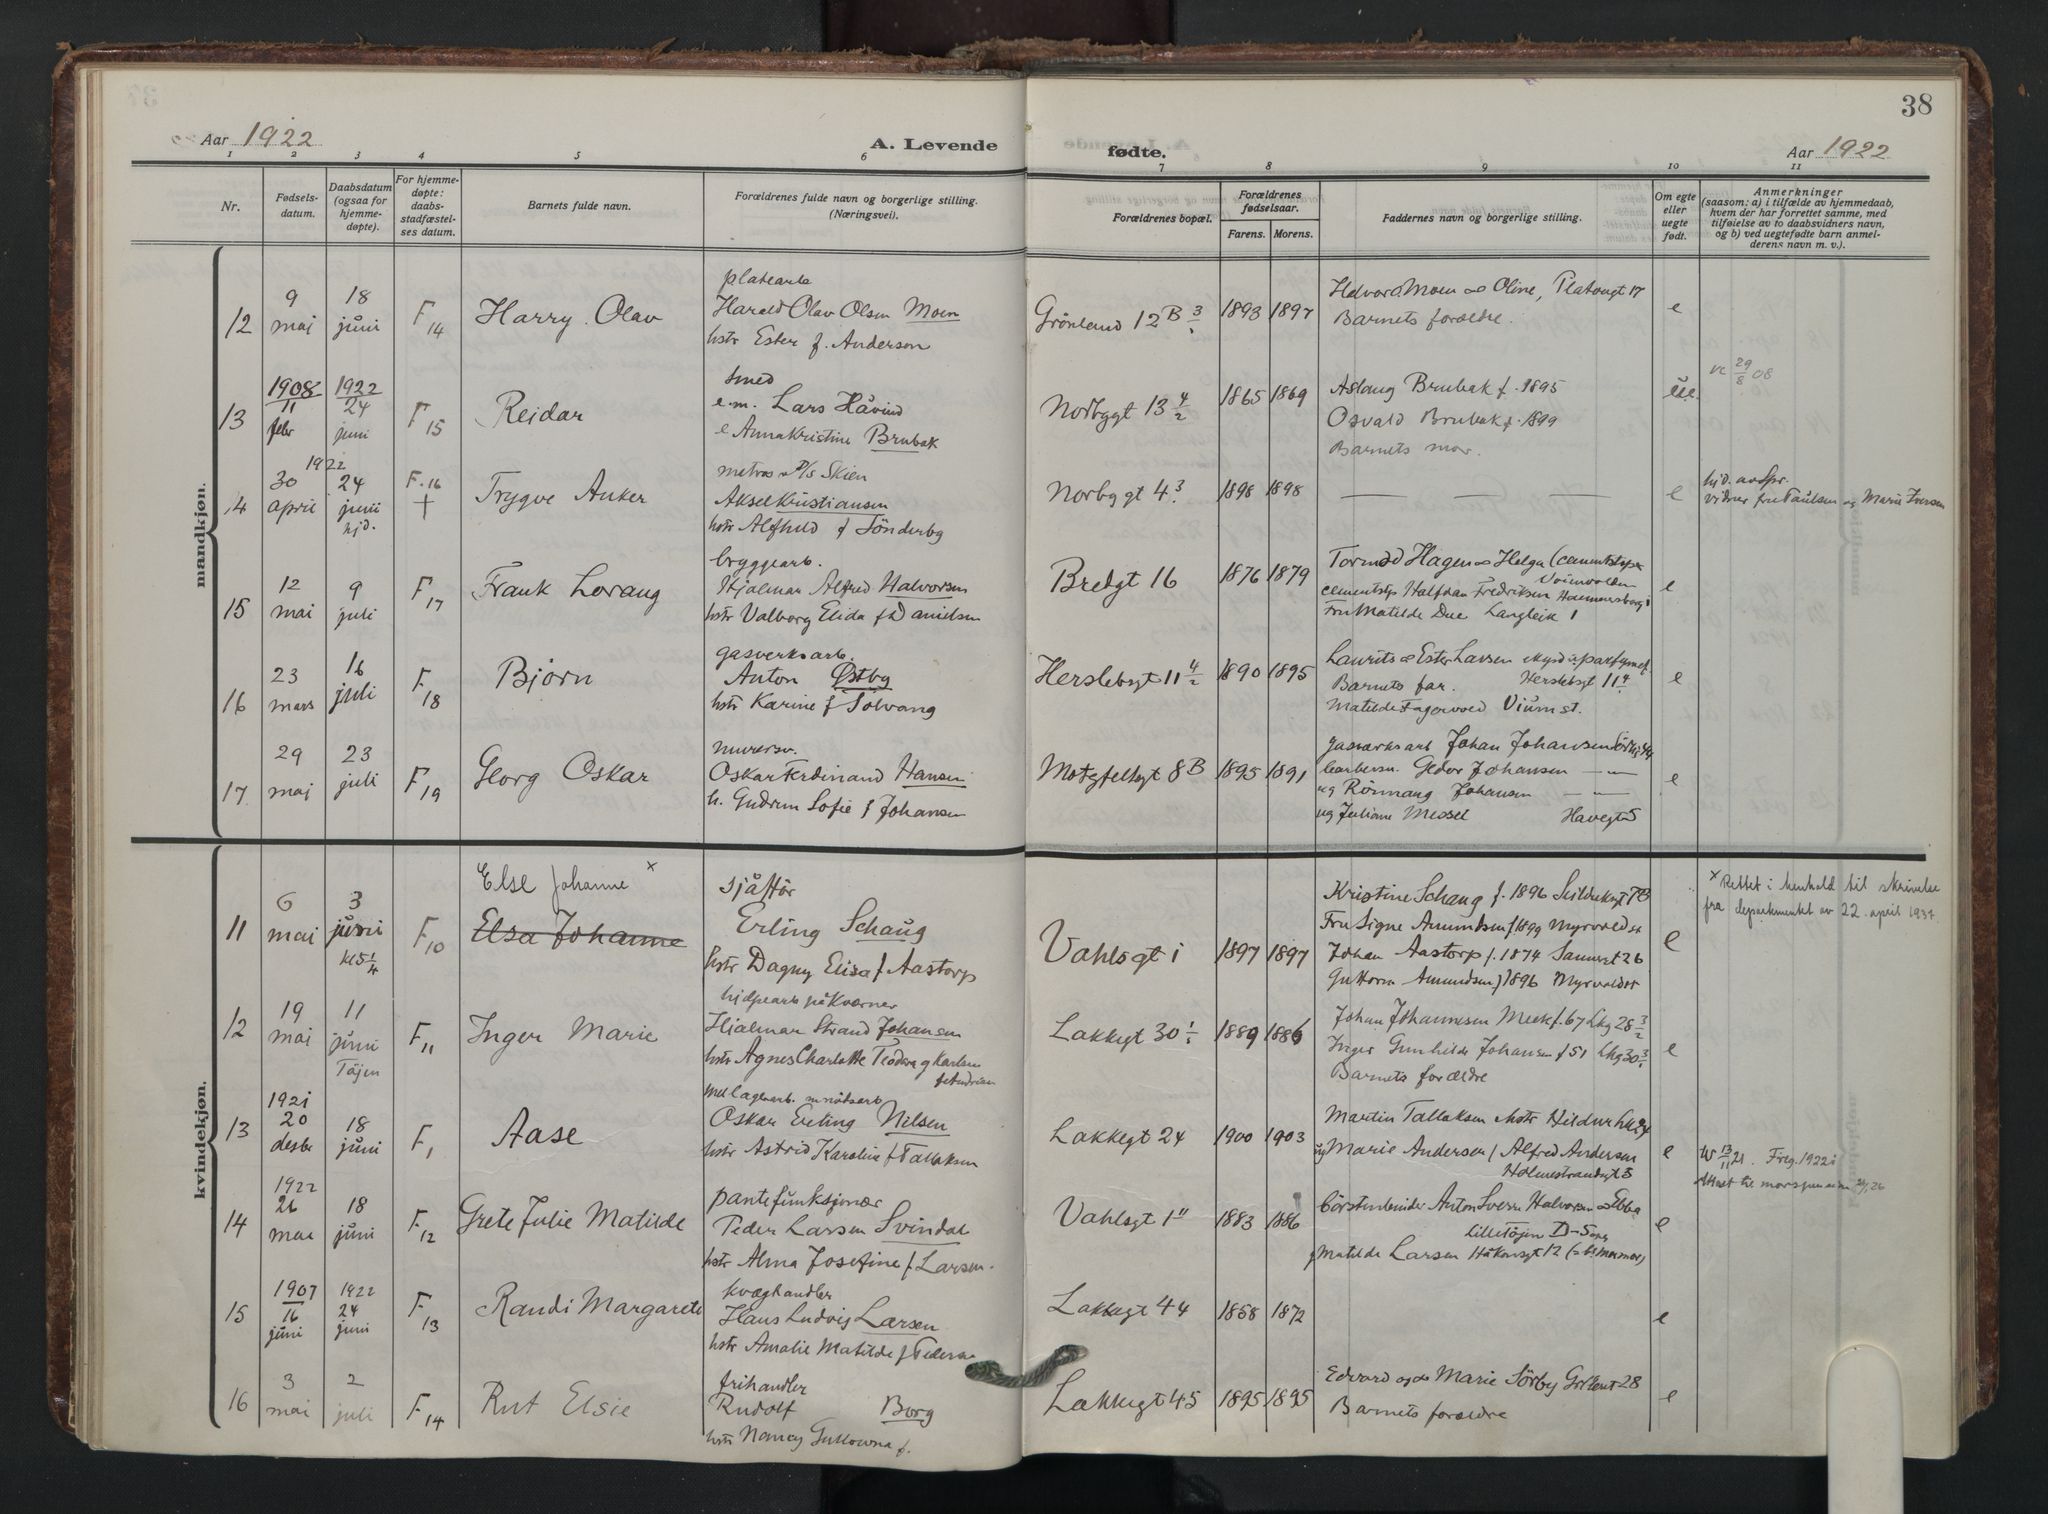 38
Aar 1922
A. Levende
fødte.
Aar 1922
1 2 3 4 5 6 7 8 9 10 11
Nr.
Fødsels-
datum.
Daabsdatum
(ogsaa for
hjemme-
døpte).
For hjemme-
døpte:
daabs-
stadfæstel-
ses datum.
Barnets fulde navn.
Forældrenes fulde navn og borgerlige stilling.
(Næringsvei).
Forældrenes bopæl.
Forældrenes
fødselsaar.
Farens. Morens.
Faddernes navn og borgerlige stilling.
Om egte
eller
uegte
født.
Anmerkninger
(saasom: a) i tilfælde av hjemmedaab,
hvem der har forrettet samme, med
tilføielse av to daabsvidners navn,
og b) ved uegtefødte barn anmel-
derens navn m. v.).
mandkjøn.
12
9
mai
18
juni
F 14
Harry Olav
platearb
Harald Olav Olsen Moen
hstr Ester f. Anderson
Grönland 12 B 3/1
1893 1897
Halvard Moen og Oline, Platougt 17
Barnets forældre.
e
13
1908
11
febr
1922
24
juni
F 15
Reidar
smed
e.m. Lars Håvind
e Anna Kristine Brubak
Norbygt 13 4/2
1865 1869
Aslaug Brubak f. 1895
Osvald Brubak f. 1899
Barnets mor.
ue
vc 29/8 08
14
1922
30
april
24
juni
hjd.
F. 16
+
Trygve Anker
matros D/S Skien
Aksel Kristiansen
hstr Alfhild f Sönderby
Norbygt 4 3
1898 1898
— — —
e
hjd. av Spr.
vidner fru Paulsen og Marie Iversen
15
12
mai
9
juli
F 17
Frank Lorang
bryggearb.
Hjalmar Alfred Halvorsen
hstr Valborg Elida f Danielsen
Bredgt 16
1876 1879
Tormod Hagen og Helga (cementstøper
Voienvolden
cementstp Halfdan Fredriksen Hammersborg 1
Fru Matilde Due Langleik 1
e
16
23
mars
16
juli
F 18
Bjorn
gasverksarb.
Anton Østby
hstr Karine f Solvang
Herslebsgt 11 4/2
1890 1895
Laurits og Ester Larsen
Herslebsgt 11 4
Barnets far.
Matilde Fagervold
e
17
29
mai
23
juli
F 19
Georg Oskar
murersv.
Oskar Ferdinand Hansen
h. Gudrun Sofie f Johansen
Motzfeltsgt 8 B
1895 1891
gasværksarb Johan Johansen
barbersv. Gedor Johansen — " —
ug Rönnaug Johansen — " —
ug Juliane Messel Havegt 5
e
kvindekjøn.
11
6
mai
3
juni
kl 5 1/4
F 10
Else Johanne x
Elsa Johanne
sjåffør
Erling Schaug
hstr Dagny Elisa f Aastorp
Vahlsgt 1
1897 1897
Kristine Schaug f. 1896 Seildukgt 7B
Fru Signe Amundsen f 1899 Myrvold st
Johan Aastorp f. 1874 Sannergt 26
Guttorm Amundsen f 1896 Myrvold st
e
x Rettet i henhold til skrivelse
fra departmentet av 22. april 1937.
12
19
mai
11
juni
Töjen
F 11
Inger Marie
hjelpearb på Kværner
Hjalmar Strand Johansen
hstr Agnes Charlotte Teodora
Lakkegt 30 1/1
1889 1886
Johan Johannesen Meek f. 67 Lkg 28 3/2
Inger Gunhilde Johansen f 51 Lkg 30 3
Barnets forældre
e
13
1921
20
desbr
18
juni
F 1
Aase
Oskar Erling Nilsen
hstr Astrid Karoline f Tallaksen
Lakkegt 24
1900 1903
Martin Tallaksen og hstr Hildur Lk 24
ug Marie Andersen / Alfred Andersen
Holmestrandsgt 3
e
W 13/11 21. Freg. 1922
14
1922
26
mai
18
juni
F 12
Grete Julie Matilde
pantefunksjonær
Peder Larsen Svindal
hstr Alma Josefine f Larsen.
Vahlsgt 1 II
1883 1886
börstenbinder Anton Sverre Halvorsen og Ebba
Lilletöjen
Matilde Larsen Håkonsgt 12 (bs mormor)
e
15
1907
16
juni
1922
24
juni
F 13
Randi Margarete
kvæghandler
Hans Ludvig Larsen
hstr Amalie Matilde f Pederse
Lakkegt 44
1858 1872
e
16
3
mai
2
juli
F 14
Rut Elsie
frihandler
Rudolf Borg
hstr Nancy f.
Lakkegt 45
1895 1895
Edvard og Marie Sörby 28
Barnets forældre
e